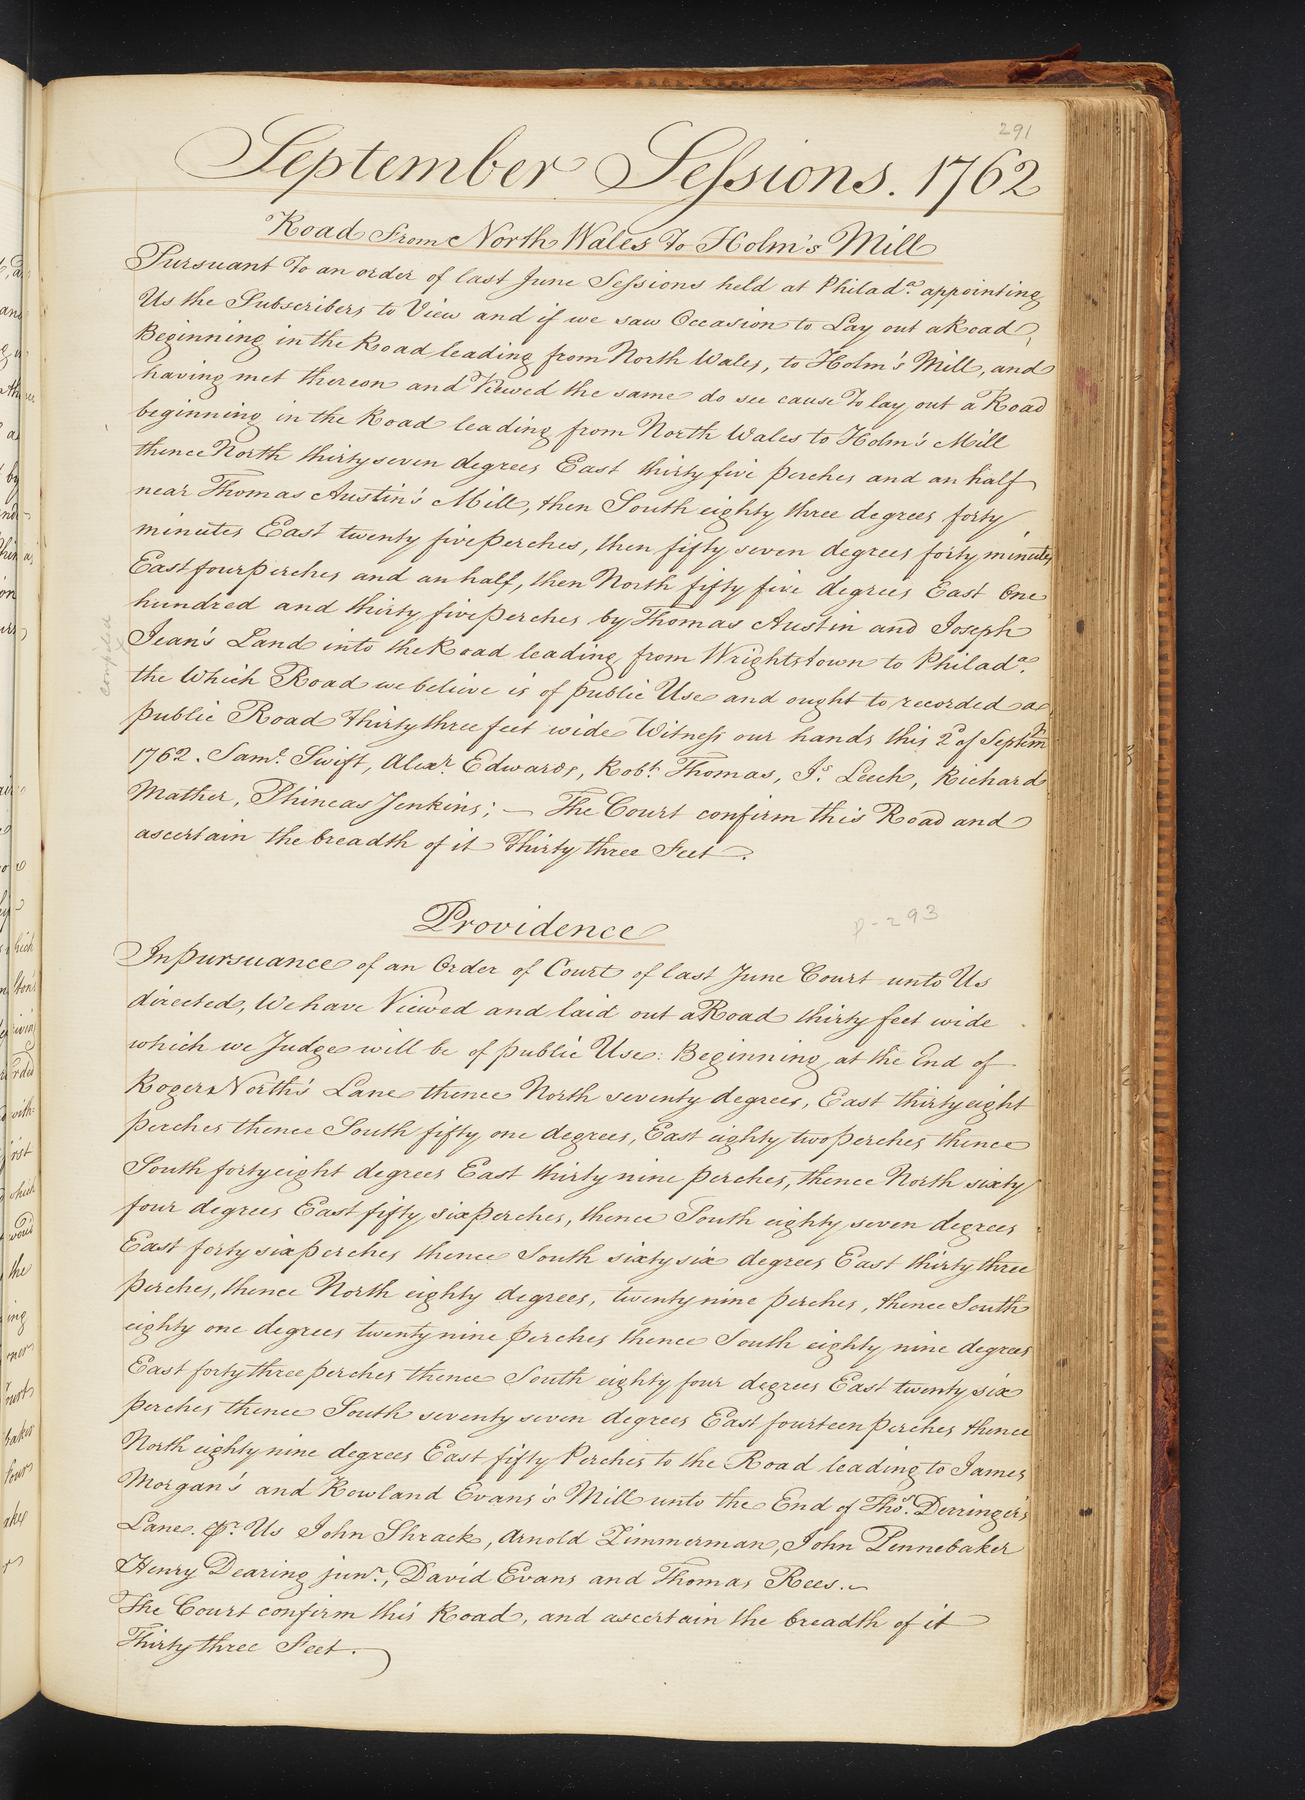 291
September Sessions. 1762
Road From North Wales To Holm's Mill
Pursuant To an order of last June Sessions held at Philad.a appointing
Us the Subscribers to View and if we saw Occasion to Lay out a Road,
Beginning in the Road leading from North Wales, to Holm's Mill, and
having met thereon and Viewed the same do see cause To lay out a Road
beginning in the Road leading from North Wales to Holm's Mill
thence North thirty seven degrees East thirty five perches and an half
near Thomas Austin's Mill, then South eighty three degrees forty
minutes East twenty five perches, then fifty seven degrees forty minutes
East four perches and an half, then North fifty five degrees East One
hundred and thirty five perches by Thomas Austin and Joseph
Jean's Land into the Road leading from Wrightstown to Philad.a
the Which Road we believe is of public Use and ought to recorded a
public Road Thirty three feet wide Witness our hands this 2d of Septem.r
1762. Sam.l Swift, Alex.r Edwards, Rob.t Thomas, Js. Leech, Richard
Mather, Phineas Jenkins; — The Court confirm this Road and
ascertain the breadth of it Thirty three Feet.
compiled
Providence
p-293
In pursuance of an Order of Court of last June Court unto Us
directed, We have Viewed and laid out a Road thirty feet wide
which we Judge will be of public Use: Beginning at the End of
Roger North's Lane thence North seventy degrees, East thirty eight
perches thence South fifty one degrees, East eighty two perches thence
South forty eight degrees East thirty nine perches, thence North sixty
four degrees East fifty six perches, thence South eighty seven degrees
East forty six perches thence South sixty six degrees East thirty three
perches, thence North eighty degrees, twenty nine perches, thence South
eighty one degrees twenty nine perches thence South eighty nine degrees
East forty three perches thence South eighty four degrees East twenty six
perches thence South seventy seven degrees East fourteen perches thence
North eighty nine degrees East fifty Perches to the Road leading to James
Morgan's and Rowland Evans's Mill unto the End of Tho.s Derringer's
Lane. pr. Us John Shrack, Arnold Zimmerman, John Pennebaker
Henry Dearing jun.r, David Evans and Thomas Rees.—
The Court confirm this Road, and ascertain the breadth of it
Thirty three Feet.